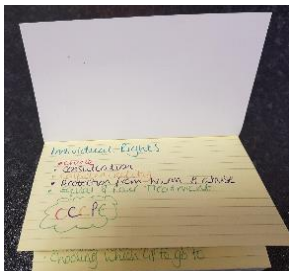 Individual Rights
• choice
• consultation
• confidentiality
• Protection from harm & abuse
• equal & fair Treatment
CCCPE
• Choosing which GP to go to